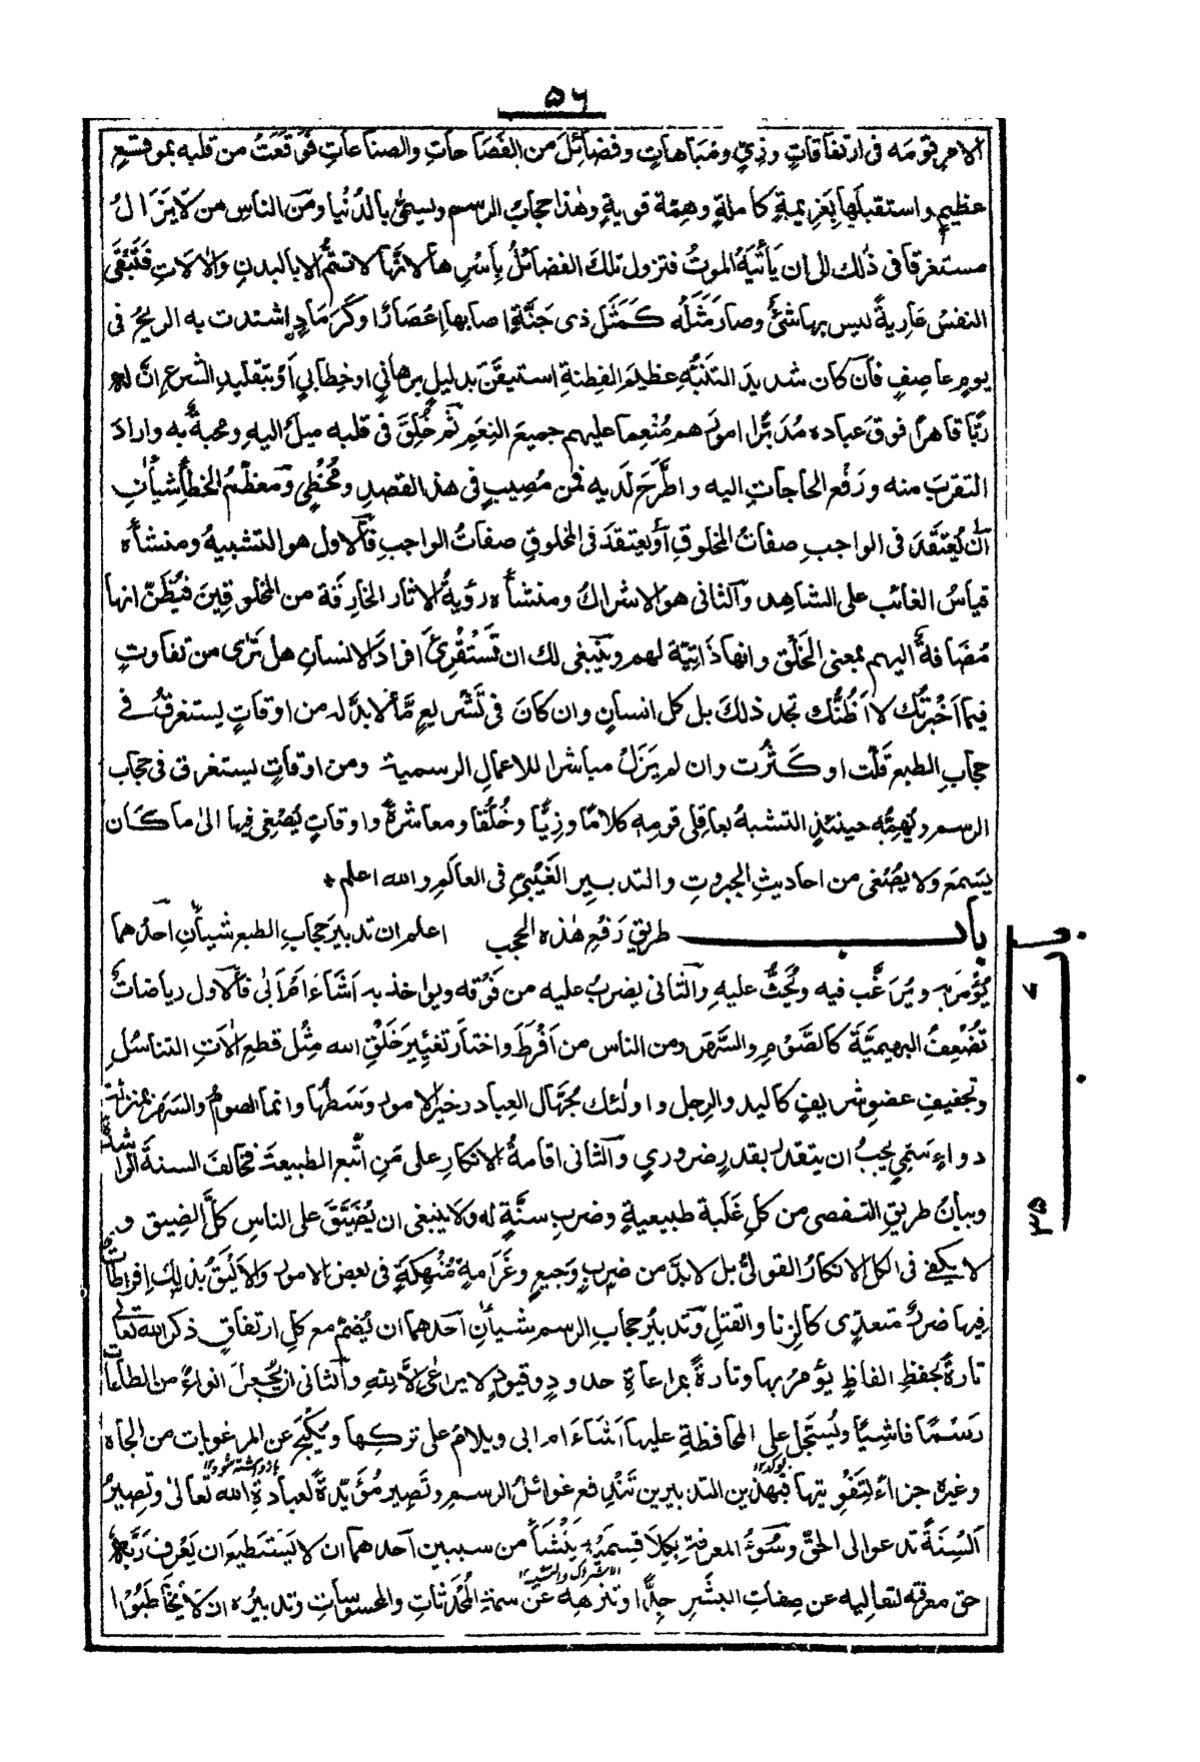 ۵۶
الامر قومَه فى ارتفاقاتٍ وزىٍّ ومُبَاهاتٍ وفضائلَ من الفَصَاحاتِ والصناعاتِ فوقعَتْ من قلبه بموقعٍ
عظيمٍ واستقبلَها بِعَزِيمةٍ كاملةٍ وهِمّة قويةٍ وهٰذا حجابُ الرسم ويسمّىٰ بالدُّنيا ومَن الناسِ من لا يَزَالُ
مستغرقا فى ذٰلك الىٰ ان يَأتيَهُ الموتُ فتزول تلكَ الفضائلُ بِأَسْرِها لانَّها لا تتمُّ الا بالبدنِ والآلاتِ فَتَبْقَى
النفسُ عَارِيةً ليس بها شئٌ وصار مَثَلُه كَمَثَلِ ذى جَنَّةٍ اصابها اِعْصَارٌ او كَرَمادٍ اِشتدت به الريحُ فى
يومٍ عاصِفٍ فان كان شديدَ التَنَبُّهِ عظيمَ الفِطنةِ استيقَنَ بدليلٍ برهانىٍ او خِطابىٍ او بتقليدِ الشرعِ انّ له
ربّا قاهرًا فوقَ عباده مُدَبِّرًا امورَهم مُنْعِما عليهم جميعَ النِعَمِ ثم خُلِقَ فى قلبه ميلٌ اليهِ ومحبةٌ به واراد
التقربَ منه ورَفْع الحاجاتِ اليه واطَّرَحَ لَدَيه فمن مُصِيبٍ فى هذا القصدِ ومُخْطِئٍ ومعظمُ الخطأِ شيأَانِ
ان يُعتقَدَ فى الواجبِ صفاتُ المخلوقِ او يعتقدَ فى المخلوقِ صفاتُ الواجبِ فالاول هو التشبيهُ ومنشأُه
قياسُ الغائب على الشاهِد والثانى هو الاشراكُ ومنشأُه رؤيةُ الاٰثار الخارِقَة من المخلوقِينَ فيُظَنّ انها
مُضَافةٌ اليهم بمعنى الخَلْقِ وانها ذَاتِيّة لهم وينبغى لك ان تَسْتَقْرِئَ افرادَ الانسانِ هل تَرٰى من تفاوتٍ
فيما اَخبرتُك لا اَظُنُّك تجد ذلكَ بل كل انسانٍ وان كانَ فى تَشْريعٍ مّا لا بدَّ له من اوقاتٍ يستغرقُ فى
حجابِ الطبعِ قَلّت او كَثُرت وان لم يَزَلْ مباشرا للاعمالِ الرسمية ومن اوقاتٍ يستغرق فى حجاب
الرسم ويُهِمُّه حينئذٍ التشبهُ بعاقِلى قومِه كلامًا وزِيًّا وخُلُقا ومعاشرةً واوقاتٍ يُصْغِى فيها الىٰ ما كان
يسمَعُ ولا يُصْغى من احاديثِ الجبروتِ والتدبيرِ الغَيْبِىِّ فى العالَمِ والله اعلم
باب طريقِ رَفْعِ هٰذه الحجب اعلم ان تدبيرَ حجابِ الطبع شيأَانِ احدُهما
يُؤمَر به ويُرَغَّب فيه ويُحَثُّ عليهِ والثانى يضربُ عليه من فَوْقه ويواخذ به اَشَاءَ اَمْ اَبىٰ فالاول رياضاتٌ
تُضْعِفُ البهيميَّةَ كالصَّوْمِ والسَّهَرِ ومن الناس من اَفْرَطَ واختار تغيِيرَ خَلْقِ الله مِثْل قطعِ آلاتِ التناسُلِ
وتجفيفِ عضوٍ شريفٍ كاليد والرِجل واولٰئك جُهَّال العِباد وخيرُ الامورِ وَسَطُها وانما الصومُ والسَهَر بمنزلة
دواءٍ سَمّىٍ يجبُ ان يتقدرَ بقدرٍ ضروريٍ والثانى اقامةُ الانكارِ علىٰ مَنِ اتَّبعَ الطبيعةَ فخالفَ السنةَ الراشدة
وبيانُ طريقِ التفصى من كلِ غَلَبة طبيعيةٍ وضربِ سنَّةٍ له ولا ينبغى ان يُضَيَّقَ على الناسِ كلَّ الضِيقِ و
لا يكفى فى الكلِ الانكارُ القولىُّ بل لابدَّ من ضربٍ وَجيعٍ وغَرَامةٍ مُنْهِكةٍ فى بعض الامورِ والاَليَقُ بذٰلك اِفراطاتٌ
فيها ضررٌ متعدٍّى كالزِنا والقتلِ وتدبيرُ حجابِ الرسمِ شيأَانِ احدُهما ان يُضَمَّ مع كلِ ارتفاقٍ ذكر الله تعالى
تارةً بحفظِ الفاظٍ يؤمرُ بها وتارةً بمراعاةِ حدودٍ وقيودٍ لا يراعٰى الا للهِ والثانى ان يُجعلَ انواعٌ من الطاعات
رَسْمًا فاشِيًا ويُسَجَّل على المحافظةِ عليها اَشَاءَ ام ابى ويلامُ على تركِها ويُكْبَح عن المرغوباتِ من الجاهِ
وغيرِه جزاءً لتَفْوِيتِها فبهٰذين التدبيرين تَنْدفع غوائلُ الرسم وتَصِير مُؤَيِّدةً لعبادةِ الله تعالىٰ وتصِيرُ
اَلسِنَةً تدعو الى الحقِّ وسُوءُ المعرفةِ بكِلا قِسمَيه يَنْشَأُ من سببين احدهما ان لا يَستطيعَ ان يَعْرِف رَبَّه
الاشراك والتشبيه
حق معرفته لتعاليه عن صِفاتِ البشرِ جِدًّا وتنزهِه عن سمةِ المُحدَثاتِ والمحسوساتِ وتدبيرُه ان لا يُخَاطَبُوا
۷
۳۵